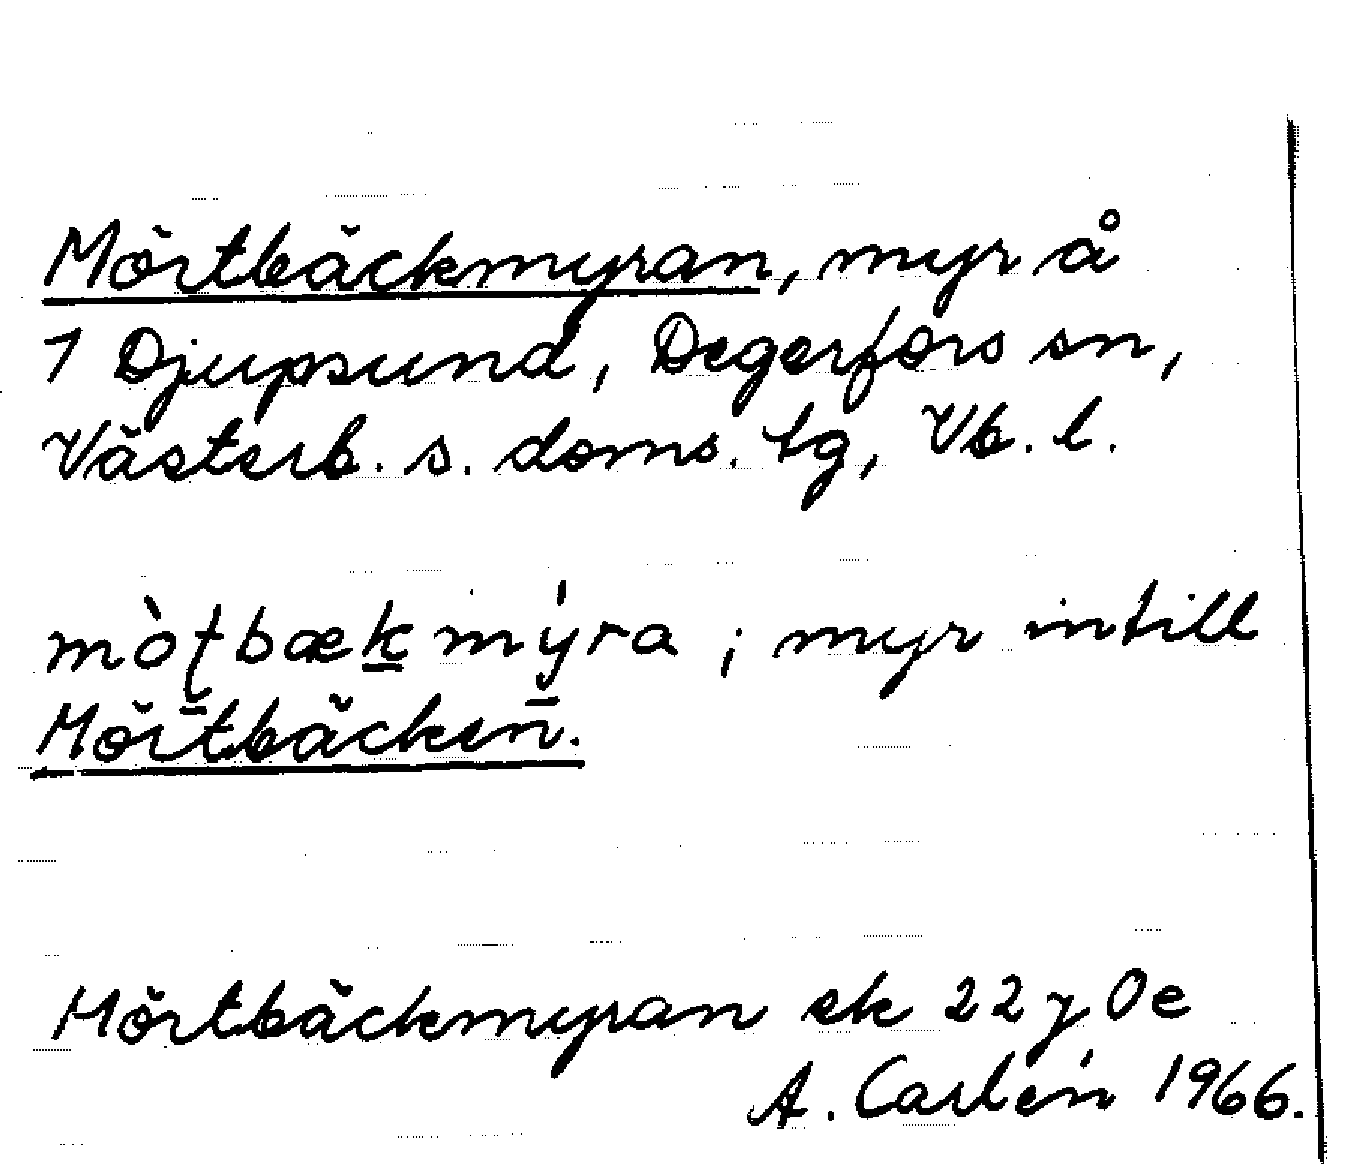 Mörtbäckmyran, myr å
1 Djupsund, Degerfors sn,
Västerb. s. doms. tg, Vb. l.
mòʈbæk mýra ; myr intill
Mörtbäcken.
Mörtbäckmyran ek 22 y 0e
A. Carlén 1966.